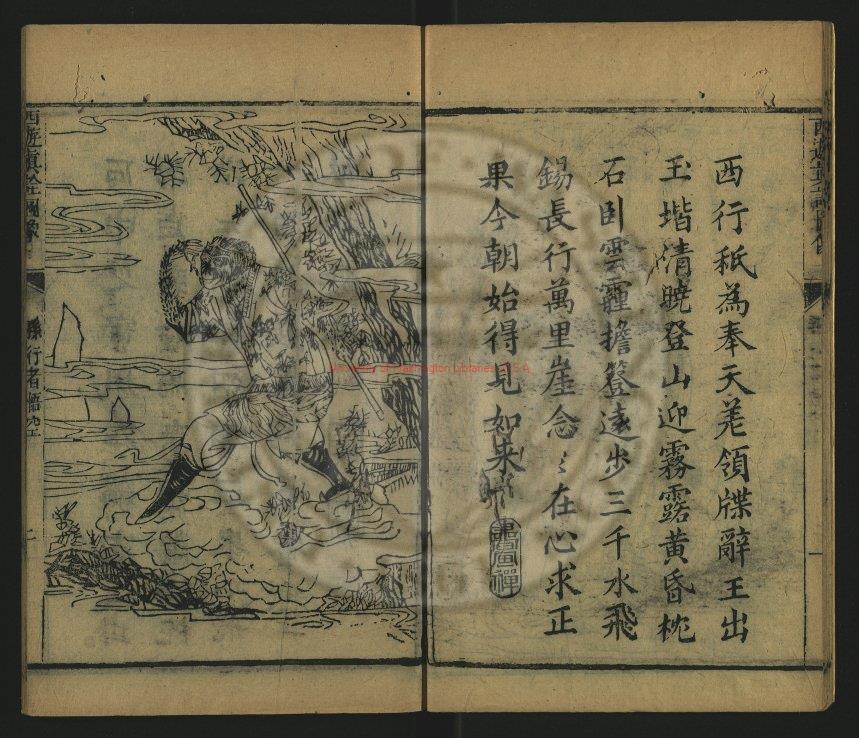 西行秖為奉天差領牒辭王出
玉堦清曉登山迎霧露黃昏枕
石卧雲霾擔簦遠步三千水飛
錫長行萬里崖念〻在心求正
果今朝始得見如来
西遊真
一
西遊真詮圖像
孫行者悟空
二
University of Washington Libraries, U.S.A.